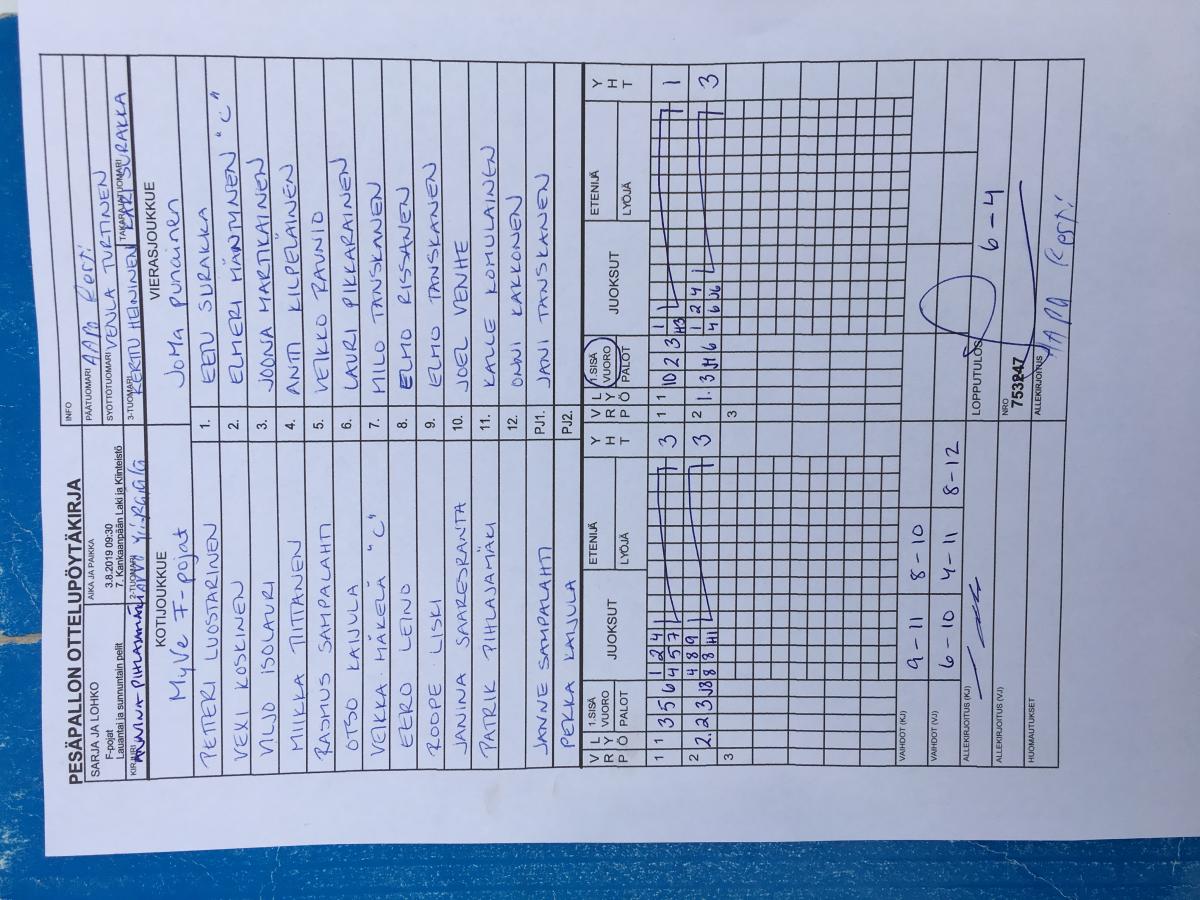 PESÄPALLON OTTELUPÖYTÄKIRJA
SARJA JA LOHKO
F-pojat
Lauantai ja sunnuntain pelit
AIKA JA PAIKKA
3.8.2019 09:30
7. Kankaanpään Laki ja Kiinteistö
INFO
PÄÄTUOMARI AAPO
SYÖTTÖTUOMARI VENLA TURTINEN
KIRJURI
2-TUOMARI
3-TUOMARI KERTTU HEININEN
TAKARAJATUOMARI KARI SURAKKA
KOTIJOUKKUE
VIERASJOUKKUE
MyVe F-pojat
JoMa Punainen
PETTERI LUOSTARINEN 1. EETU SURAKKA
VEXI KOSKINEN 2. ELMERI MÄNTYNEN "C"
VILJO ISOLAURI 3. JOONA MARTIKAINEN
MIIKKA TIITTANEN 4. ANTTI KILPELÄINEN
RASMUS SAMPALAHTI 5. VEIKKO RAUNIO
OTSO KAIJULA 6. LAURI PIKKARAINEN
VEIKKA MÄKELÄ "C" 7. MILO TANSKANEN
EERO LEINO 8. ELMO RISSANEN
ROOPE LISKI 9. ELMO TANSKANEN
JANINA SAARESRANTA 10. JOEL VENHE
PATRIK PIHLAJAMÄKI 11. KALLE KOMULAINEN
12. ONNI KAKKONEN
JANNE SAMPALAHTI PJ1. JANI TANSKANEN
PEKKA KAIJULA PJ2.
V L
R Y
P Ö
1.SISÄ
VUORO
PALOT
JUOKSUT
ETENIJÄ
LYÖJÄ
Y
H
T
V L
R Y
P Ö
1.SISÄ
VUORO
PALOT
JUOKSUT
ETENIJÄ
LYÖJÄ
Y
H
T
1 1 3 5 6 1 2 4 3
4 5 7
1 1 10 2 3 1 1
H3
2 2. 2 3 J8 4 8 9 3
8 8 H1
2 1. 3 H 6 1 2 4 3
4 6 J6
3
3
VAIHDOT (KJ) 9-11 8-10
VAIHDOT (VJ) 6-10 4-11 8-12
ALLEKIRJOITUS (KJ)
LOPPUTULOS 6-4
ALLEKIRJOITUS (VJ)
NRO
753247
HUOMAUTUKSET
ALLEKIRJOITUS